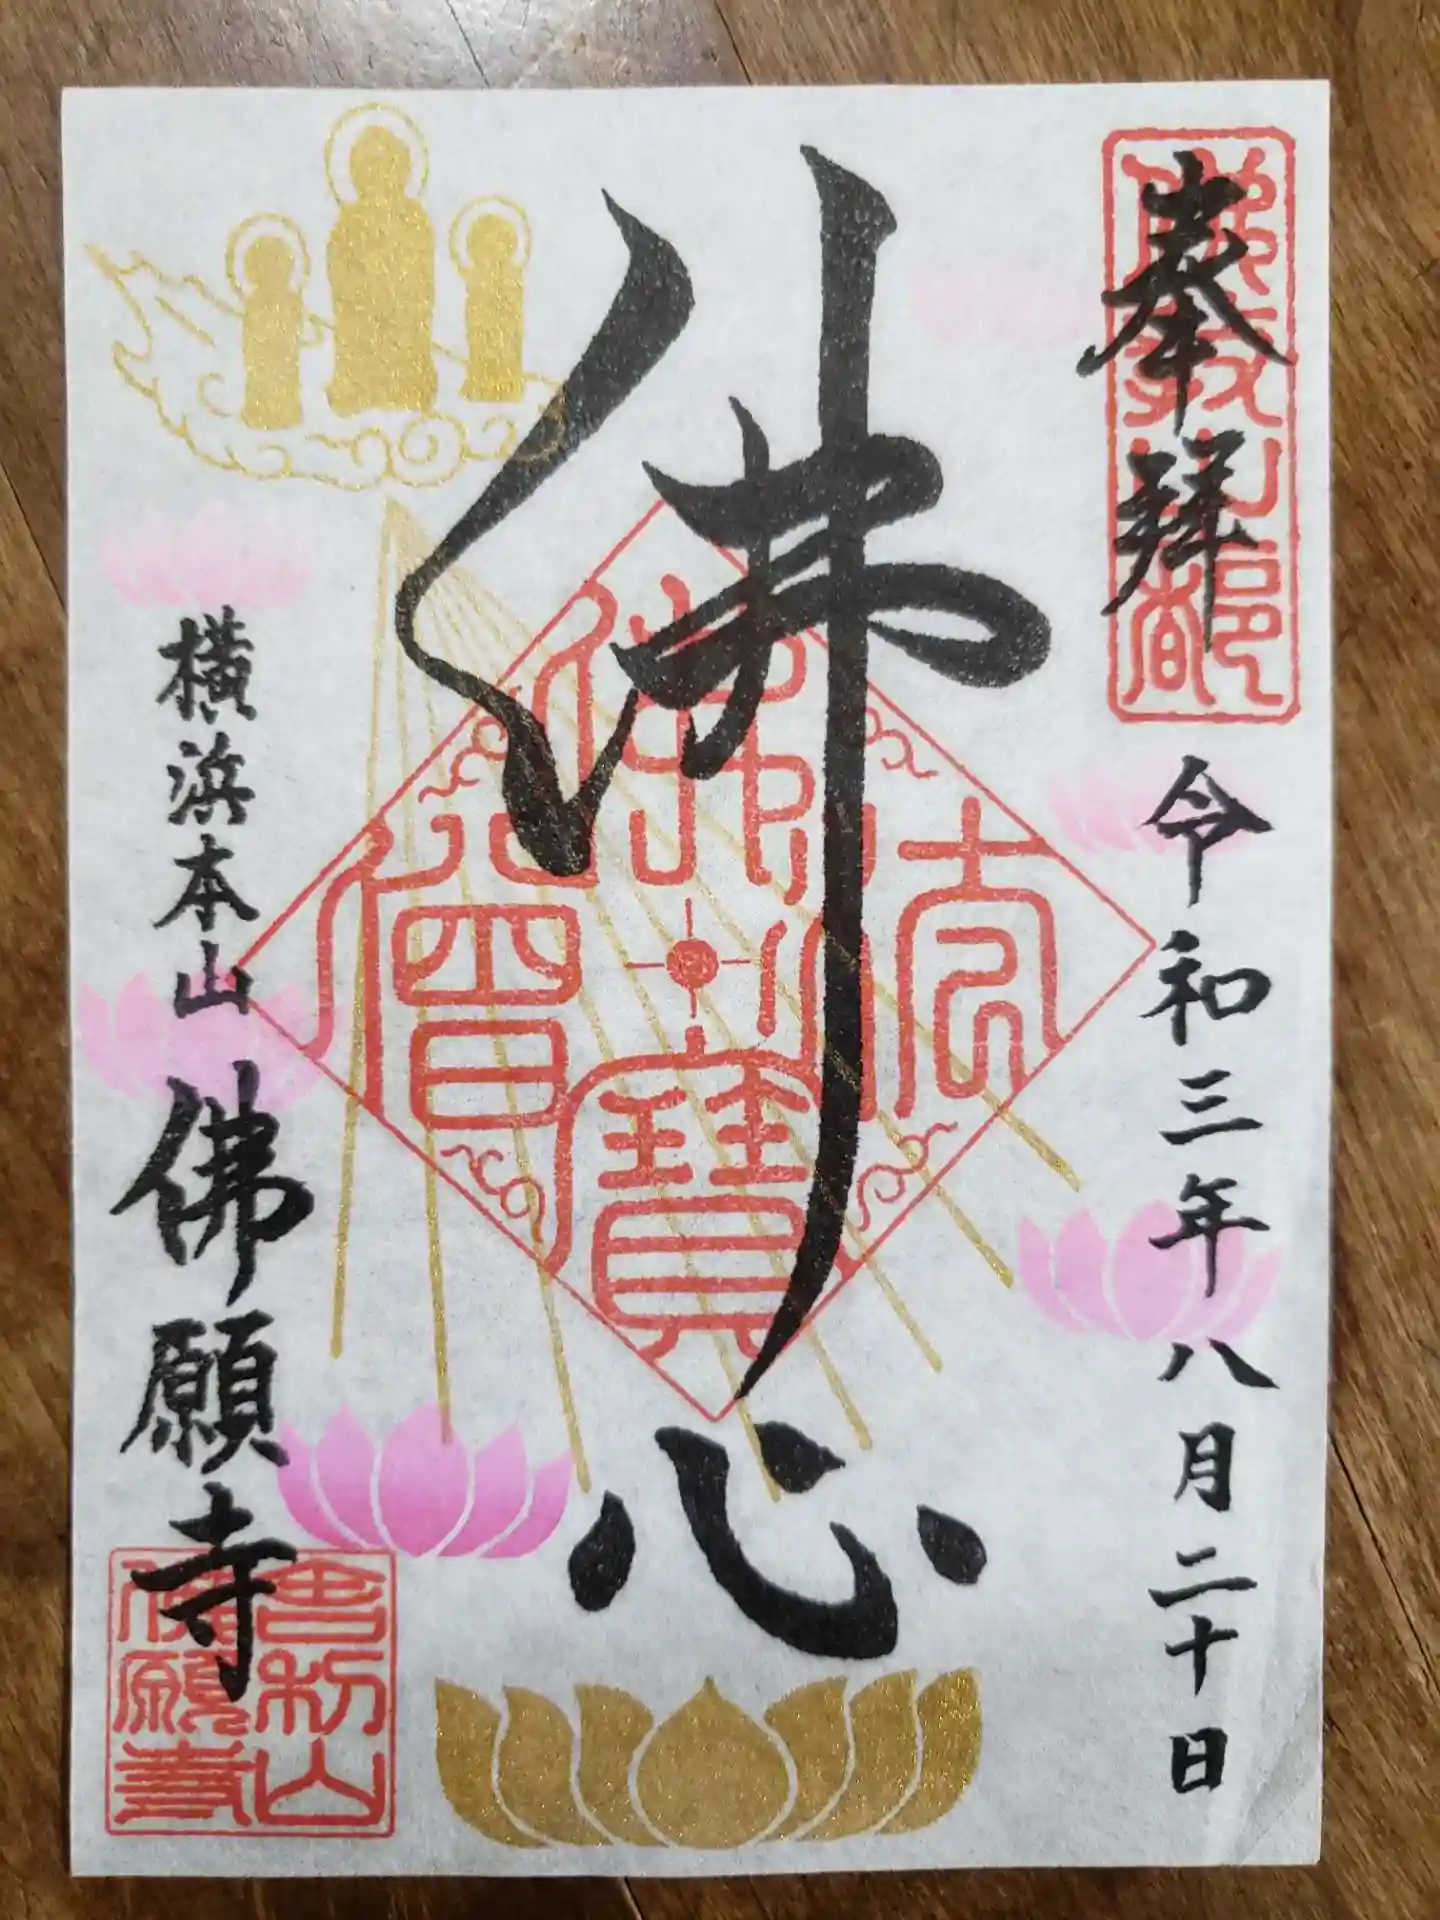 奉拝
佛教之都
令和三年八月二十日
佛心
佛法僧寶
横浜本山
佛願寺
舎利山
佛願寺